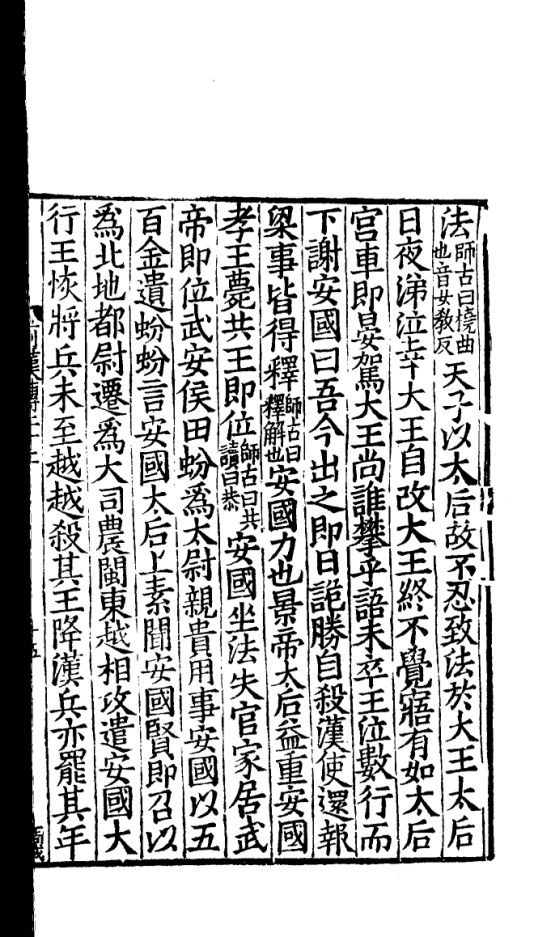 法師古曰橈曲也音女教反天子以太后故不忍致法於大王太后
日夜涕泣幸大王自改大王終不覺寤有如太后
宫車即晏駕大王尚誰攀乎語未卒王泣數行而
下謝安國曰吾今出之即日詭勝自殺漢使還報
梁事皆得釋師古曰釋解也安國力也景帝太后益重安國
孝王薨共王即位師古曰共讀曰恭安國坐法失官家居武
帝即位武安侯田蚡爲太尉親貴用事安國以五
百金遺蚡蚡言安國太后上素聞安國賢即召以
爲北地都尉遷爲大司農閩東越相攻遣安國大
行王恢將兵未至越越殺其王降漢兵亦罷其年